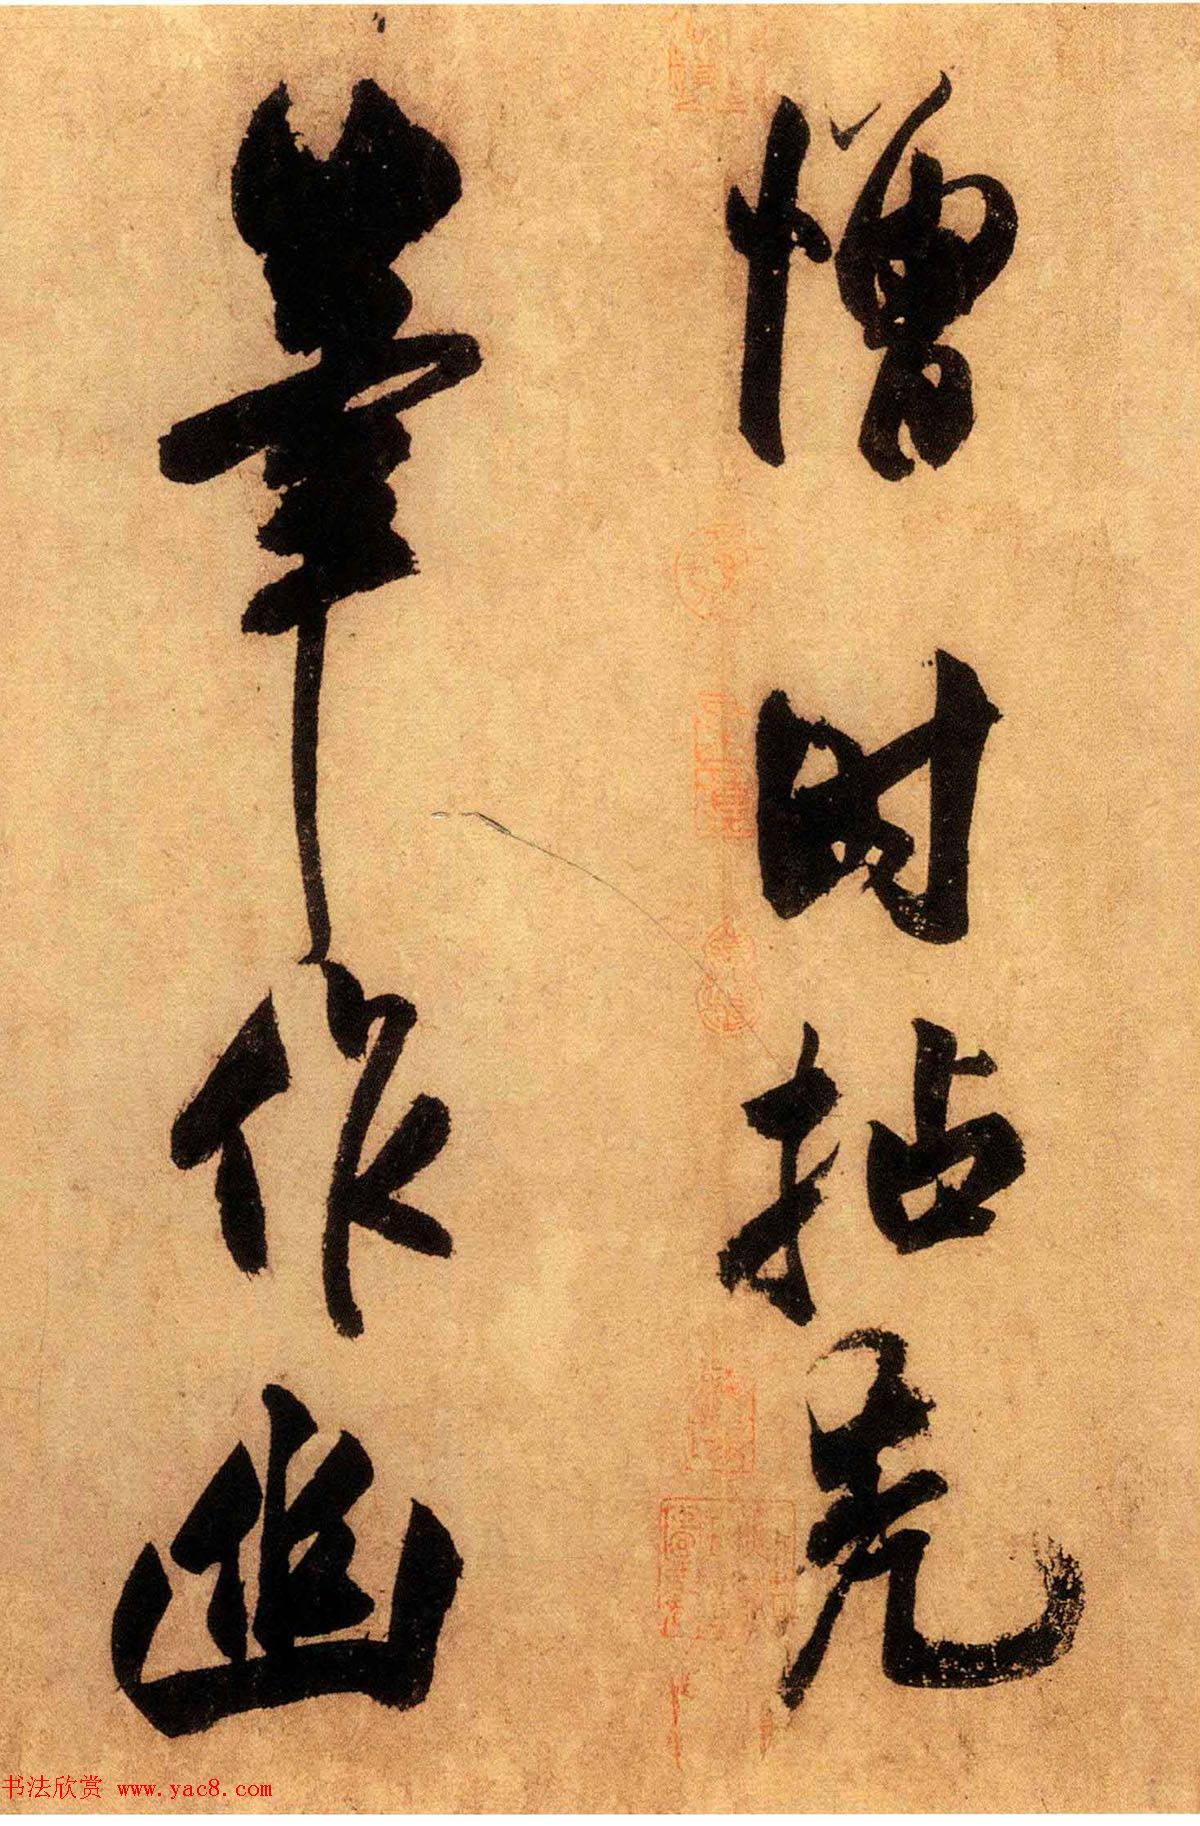 憎時拈秃
筆作幽
书法欣赏 www.yac8.com